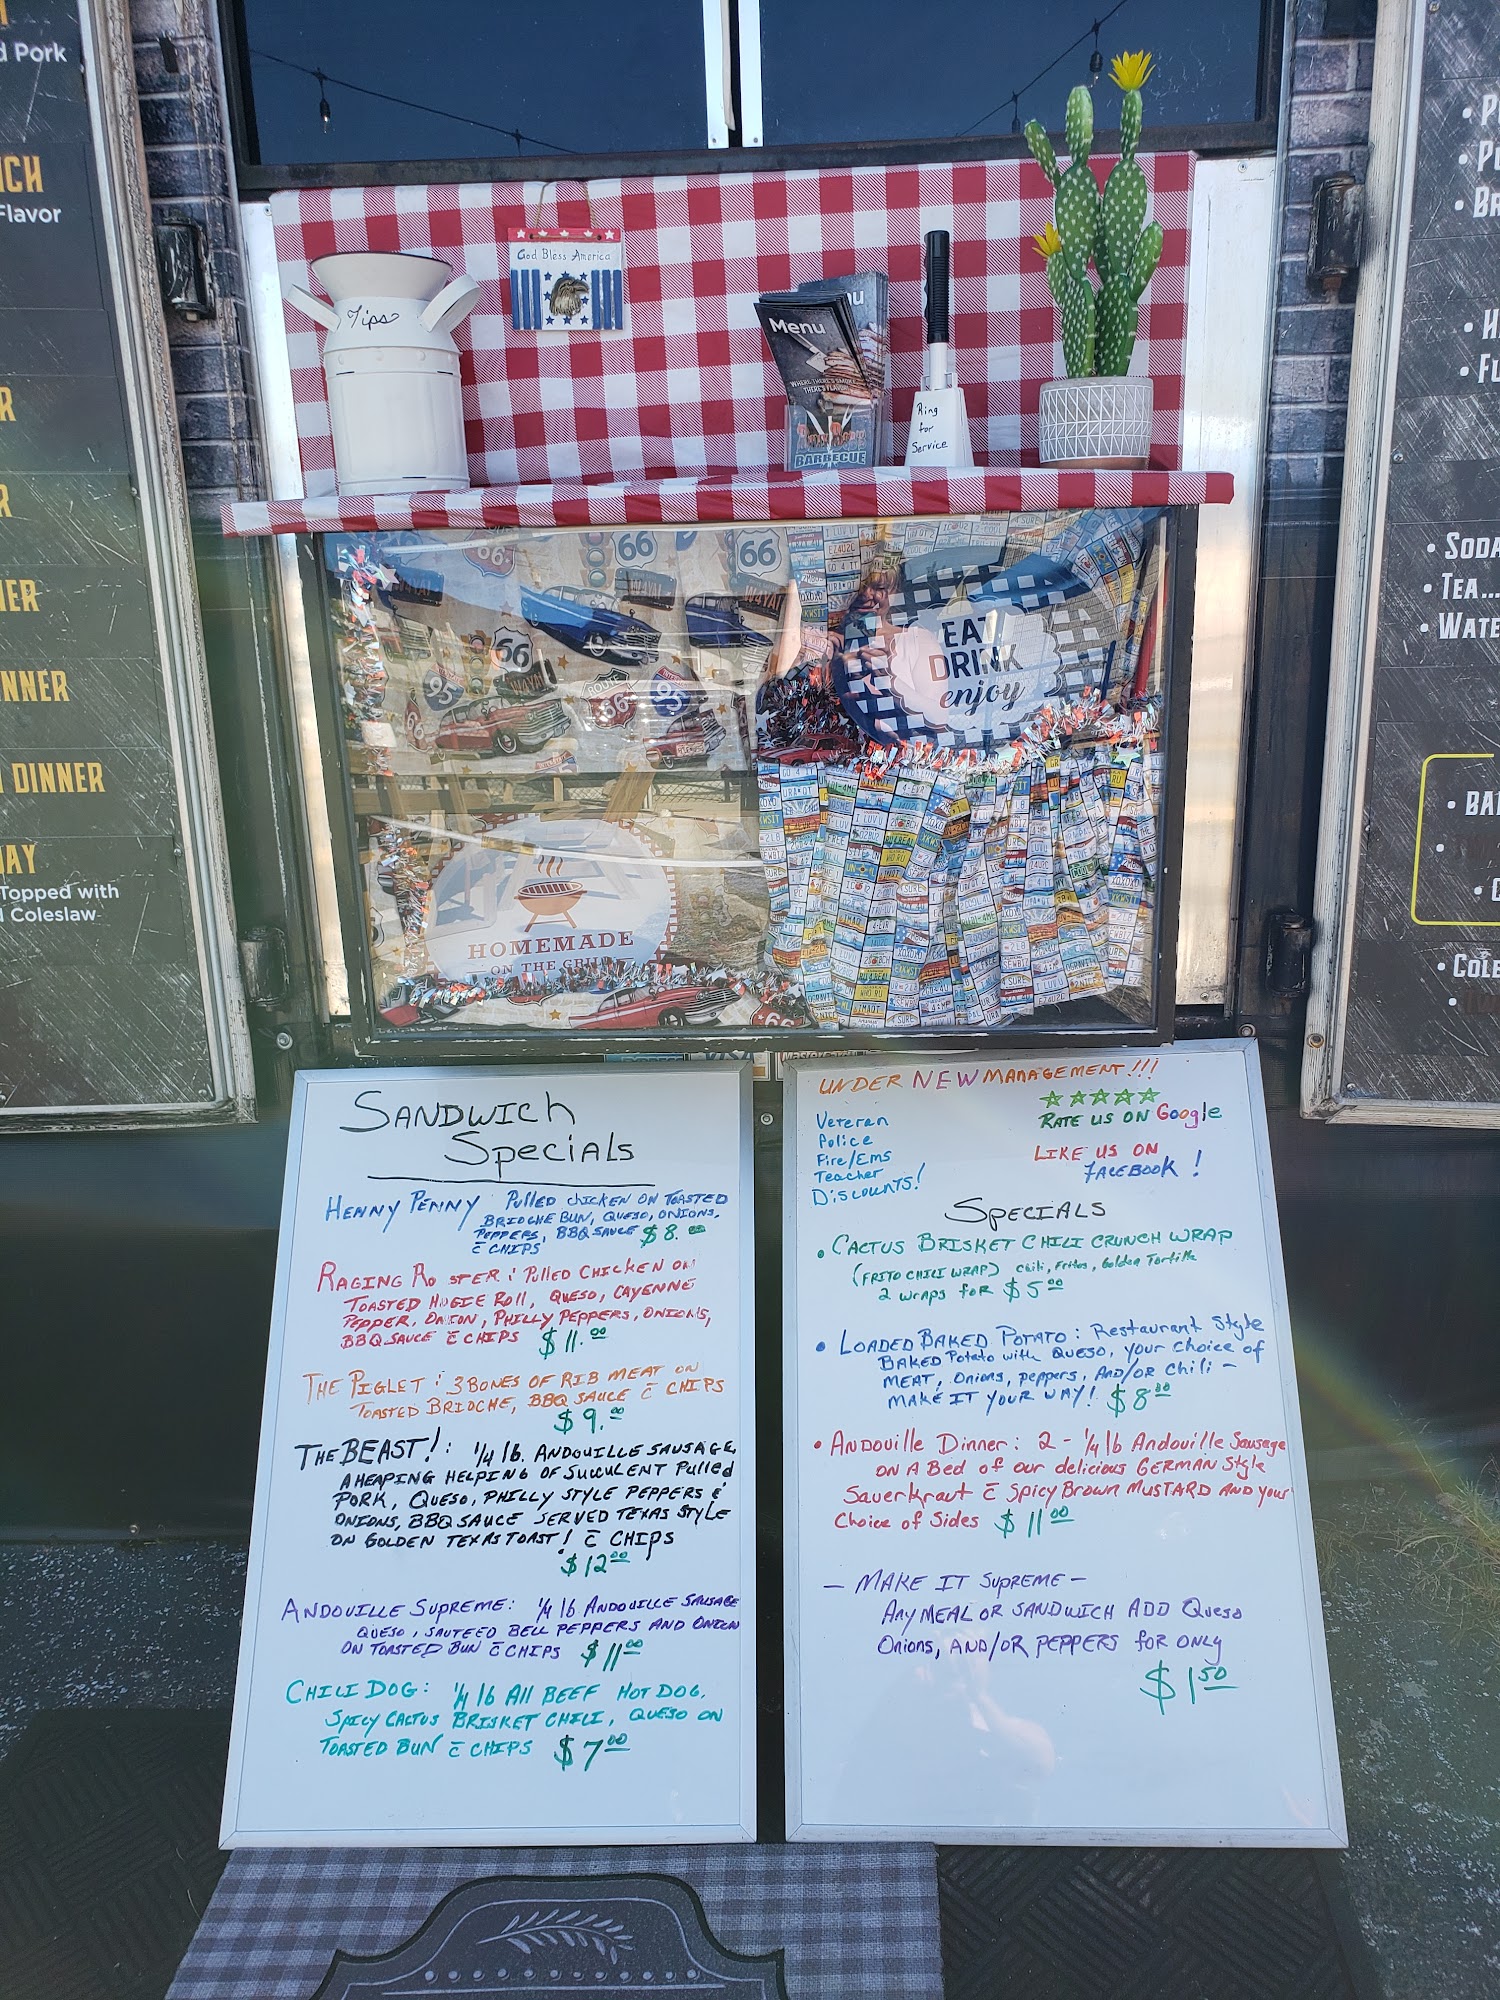 d Pork
ICH
Flavor
R
R
NER
NNER
DINNER
AY
Topped with
d Coleslaw
Tips
God Bless America
Menu
WHERE THERE'S SMOKE,
THERE'S FLAVOR!
BARBECUE
Ring
for
Service
66
66
66
95
ROUTE
66
95
EAT
DRINK
enjoy
HOMEMADE
ON THE GRILL
• SODA
• TEA...
• WATE
• BA
• COLE
SANDWICH
SPECIALS
HENNY PENNY PULLED CHICKEN ON TOASTED
BRIOCHE BUN, QUESO, ONIONS,
PEPPERS, BBQ SAUCE $8.00
c̄ CHIPS
RAGING RO STER: PULLED CHICKEN ON
TOASTED HOGIE ROLL, QUESO, CAYENNE
PEPPER, ONION, PHILLY PEPPERS, ONIONS,
BBQ SAUCE c̄ CHIPS $11.00
THE PIGLET: 3 BONES OF RIB MEAT ON
TOASTED BRIOCHE, BBQ SAUCE c̄ CHIPS
$9.00
THE BEAST!: 1/4 lb. ANDOUILLE SAUSAGE,
A HEAPING HELPING OF SUCCULENT PULLED
PORK, QUESO, PHILLY STYLE PEPPERS &
ONIONS, BBQ SAUCE SERVED TEXAS STYLE
ON GOLDEN TEXAS TOAST! c̄ CHIPS
$12.00
ANDOUILLE SUPREME: 1/4 lb ANDOUILLE SAUSAGE
QUESO, SAUTEED BELL PEPPERS AND ONION
ON TOASTED BUN c̄ CHIPS $11.00
CHILI DOG: 1/4 lb All BEEF HOT DOG,
SPICY CACTUS BRISKET CHILI, QUESO ON
TOASTED BUN c̄ CHIPS $7.00
UNDER NEW MANAGEMENT!!!
Veteran
Police
Fire/Ems
Teacher
DISCOUNTS!
RATE US ON Google
LIKE US ON
FACEBOOK!
SPECIALS
• CACTUS BRISKET CHILI CRUNCH WRAP
(FRITO CHILI WRAP) Chili, Fritos, Golden Tortilla
2 WRAPS FOR $5.00
• LOADED BAKED POTATO: Restaurant Style
BAKED Potato with QUESO, your choice of
MEAT, Onions, peppers, AND/OR Chili -
MAKE IT YOUR WAY! $8.00
• ANDOUILLE DINNER: 2 - 1/4 lb Andouille Sausage
ON A Bed of our delicious GERMAN Style
Sauerkraut c̄ Spicy Brown MUSTARD AND your
Choice of Sides $11.00
- MAKE IT SUPREME -
ANY MEAL OR SANDWICH ADD Queso
Onions, AND/OR PEPPERS for ONLY
$1.50